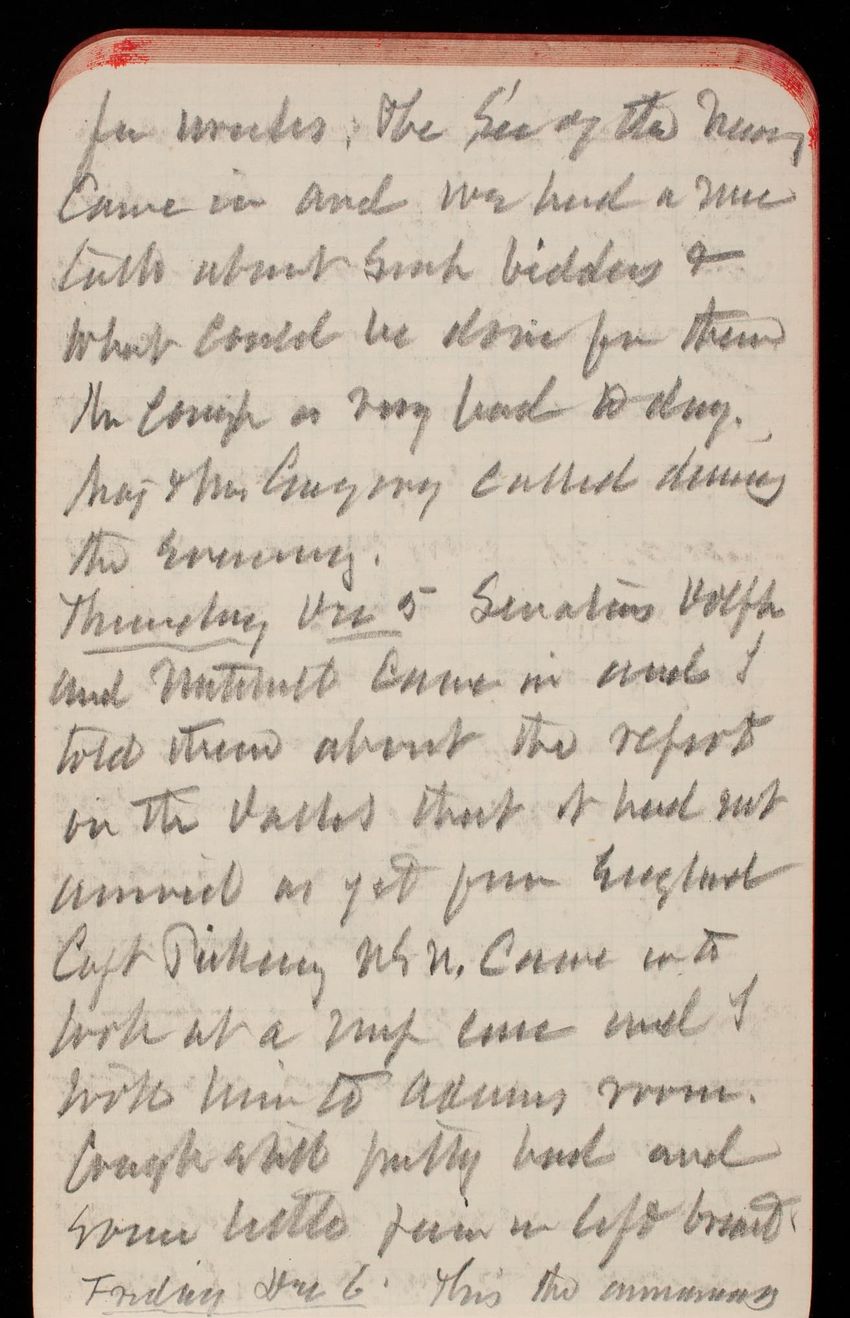 for weeks. The Sec of the Navy
Came in and we had a nice
talk about such bidders &
What could be done for them
The Cough is very bad to day.
Maj & Mrs Gregory called during
the evening.
Thursday Dec 5 Senators Dolph
and Mitchell Came in and I
told them about the report
on the Dalles that it had not
arrived as yet from England
Capt Picking USN. Came in to
look at a map case and I
took him to Adams room.
Cough still pretty bad and
some little pain in left breast
Friday Dec 6. This the anniversary